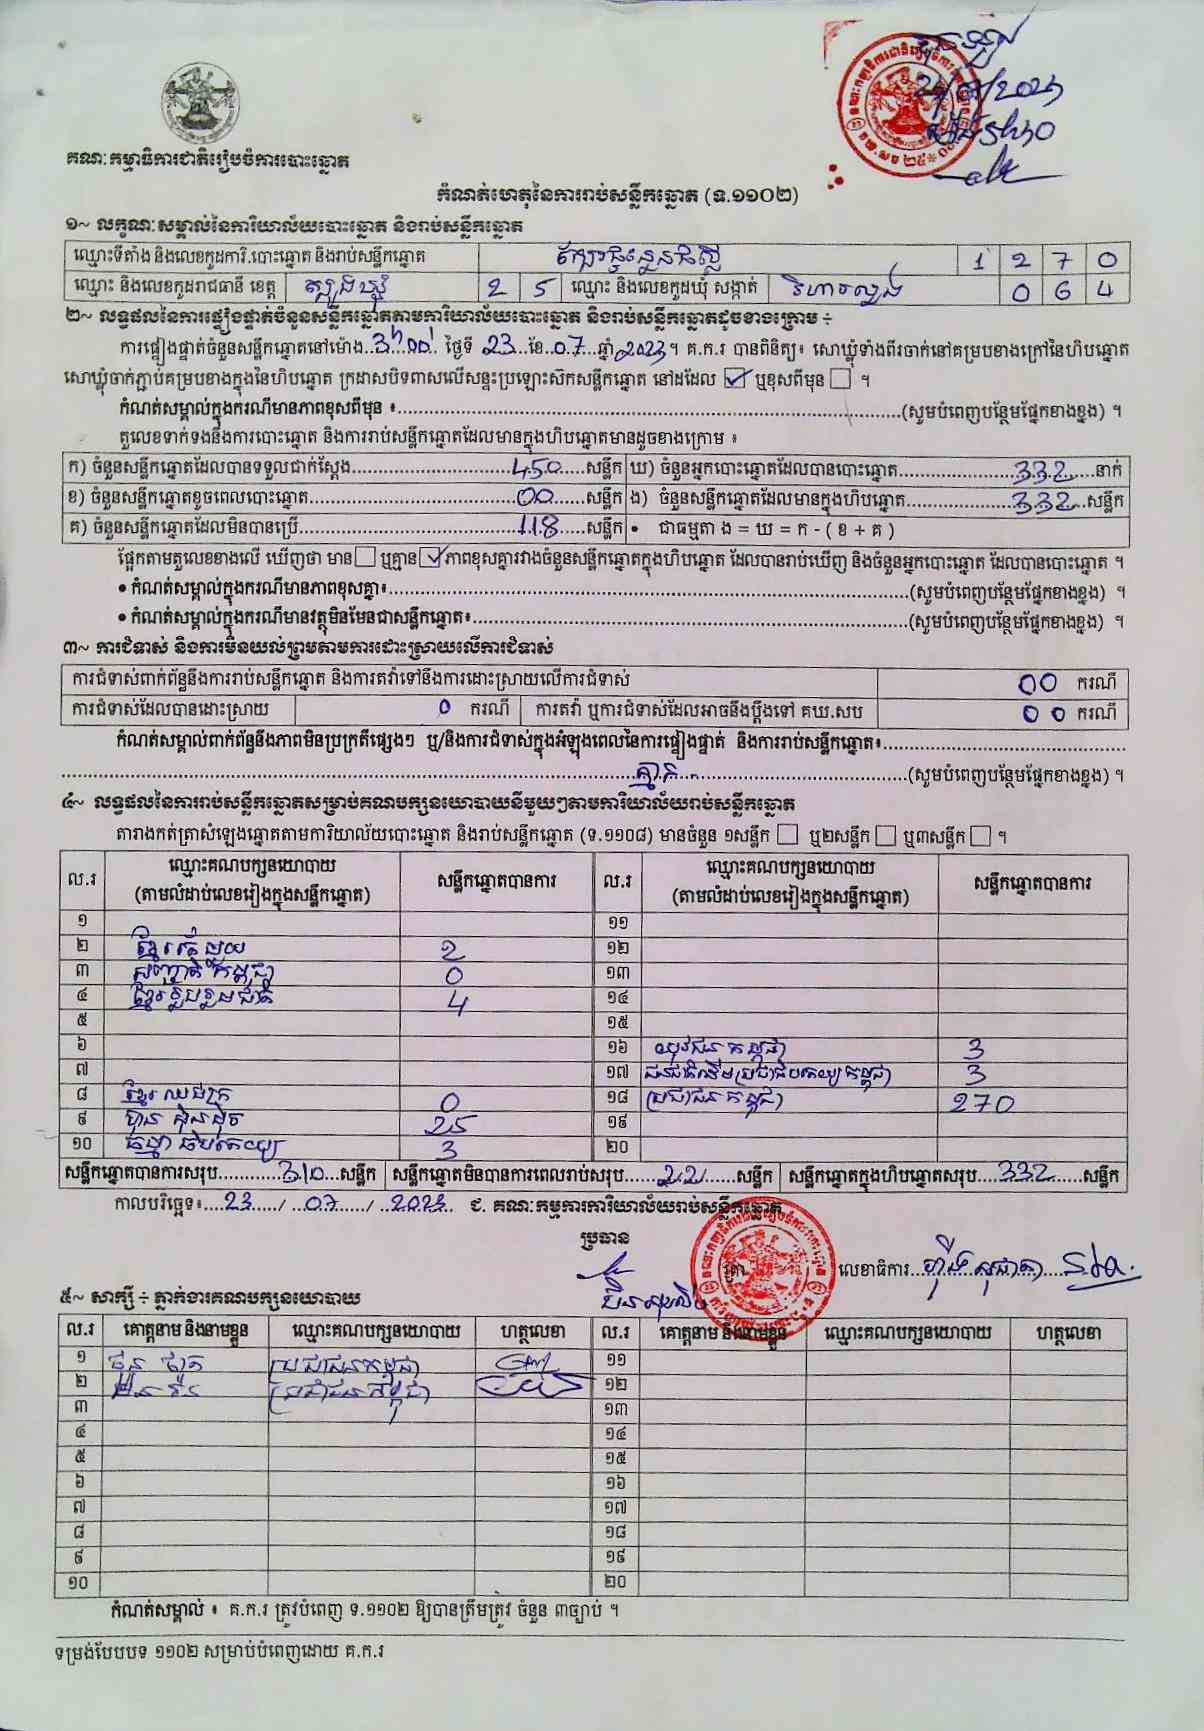 គណៈកម្មាធិការជាតិរៀបចំការបោះឆ្នោត
កំណត់ហេតុនៃការរាប់សន្លឹកឆ្នោត (ទ.១១០២)
១~ លក្ខណៈសម្គាល់នៃការិយាល័យបោះឆ្នោត និងរាប់សន្លឹកឆ្នោត
ឈ្មោះទីតាំង និងលេខកូដការិ.បោះឆ្នោត និងរាប់សន្លឹកឆ្នោត 1 2 7 0
ឈ្មោះ និងលេខកូដរាជធានី ខេត្ត ត្បូងឃ្មុំ 2 5 ឈ្មោះ និងលេខកូដឃុំ សង្កាត់ វិហារលួង 0 6 4
២~ លទ្ធផលនៃការផ្ទៀងផ្ទាត់ចំនួនសន្លឹកឆ្នោតតាមការិយាល័យបោះឆ្នោត និងរាប់សន្លឹកឆ្នោតដូចខាងក្រោម ÷
ការផ្ទៀងផ្ទាត់ចំនួនសន្លឹកឆ្នោតនៅម៉ោង..3h00.. ថ្ងៃទី 23...ខែ.07...ឆ្នាំ 2023។ គ.ក.រ បានពិនិត្យ៖ សោឃ្លុំទាំងពីរចាក់នៅគម្របខាងក្រៅនៃហិបឆ្នោត
សោឃ្លុំចាក់ភ្ជាប់គម្របខាងក្នុងនៃហិបឆ្នោត ក្រដាសបិទពាសលើសន្ទះប្រឡោះស៊កសន្លឹកឆ្នោត នៅដដែល ☑ ឬខុសពីមុន ☐ ។
កំណត់សម្គាល់ក្នុងករណីមានភាពខុសពីមុន ៖......(សូមបំពេញបន្ថែមផ្នែកខាងខ្នង) ។
តួលេខទាក់ទងនឹងការបោះឆ្នោត និងការរាប់សន្លឹកឆ្នោតដែលមានក្នុងហិបឆ្នោតមានដូចខាងក្រោម ៖
ក) ចំនួនសន្លឹកឆ្នោតដែលបានទទួលជាក់ស្តែង......450......សន្លឹក ឃ) ចំនួនអ្នកបោះឆ្នោតដែលបានបោះឆ្នោត......332......នាក់
ខ) ចំនួនសន្លឹកឆ្នោតខូចពេលបោះឆ្នោត......00......សន្លឹក ង) ចំនួនសន្លឹកឆ្នោតដែលមានក្នុងហិបឆ្នោត......332...សន្លឹក
គ) ចំនួនសន្លឹកឆ្នោតដែលមិនបានប្រើ......118......សន្លឹក • ជាធម្មតា ង = ឃ = ក - ( ខ + គ )
ផ្អែកតាមតួលេខខាងលើ ឃើញថា មាន ☐ ឬគ្មាន ☑ ភាពខុសគ្នារវាងចំនួនសន្លឹកឆ្នោតក្នុងហិបឆ្នោត ដែលបានរាប់ឃើញ និងចំនួនអ្នកបោះឆ្នោត ដែលបានបោះឆ្នោត ។
• កំណត់សម្គាល់ក្នុងករណីមានភាពខុសគ្នា៖......(សូមបំពេញបន្ថែមផ្នែកខាងខ្នង) ។
• កំណត់សម្គាល់ក្នុងករណីមានវត្ថុមិនមែនជាសន្លឹកឆ្នោត៖......(សូមបំពេញបន្ថែមផ្នែកខាងខ្នង) ។
៣~ ការជំទាស់ និងការមិនយល់ព្រមតាមការដោះស្រាយលើការជំទាស់
ការជំទាស់ពាក់ព័ន្ធនឹងការរាប់សន្លឹកឆ្នោត និងការតវ៉ាទៅនឹងការដោះស្រាយលើការជំទាស់ 00 ករណី
ការជំទាស់ដែលបានដោះស្រាយ 0 ករណី ការតវ៉ា ឬការជំទាស់ដែលអាចនឹងប្តឹងទៅ គឃ.សប 00 ករណី
កំណត់សម្គាល់ពាក់ព័ន្ធនឹងភាពមិនប្រក្រតីផ្សេងៗ ឬ/និងការជំទាស់ក្នុងអំឡុងពេលនៃការផ្ទៀងផ្ទាត់ និងការរាប់សន្លឹកឆ្នោត៖......
......គ្មាន......(សូមបំពេញបន្ថែមផ្នែកខាងខ្នង) ។
៤~ លទ្ធផលនៃការរាប់សន្លឹកឆ្នោតសម្រាប់គណបក្សនយោបាយនីមួយៗតាមការិយាល័យរាប់សន្លឹកឆ្នោត
តារាងកត់ត្រាសំឡេងឆ្នោតតាមការិយាល័យបោះឆ្នោត និងរាប់សន្លឹកឆ្នោត (ទ.១១០៨) មានចំនួន ១សន្លឹក ☐ ឬ២សន្លឹក ☐ ឬ៣សន្លឹក ☐ ។
ល.រ ឈ្មោះគណបក្សនយោបាយ (តាមលំដាប់លេខរៀងក្នុងសន្លឹកឆ្នោត) សន្លឹកឆ្នោតបានការ ល.រ ឈ្មោះគណបក្សនយោបាយ (តាមលំដាប់លេខរៀងក្នុងសន្លឹកឆ្នោត) សន្លឹកឆ្នោតបានការ
១ ១១
២ ខ្មែររួបរួម 2 ១២
៣ សញ្ជាតិកម្ពុជា 0 ១៣
៤ 4 ១៤
៥ ១៥
៦ ១៦ យុវជនកម្ពុជា 3
៧ ១៧ ជនជាតិដើមប្រជាធិបតេយ្យកម្ពុជា 3
៨ ខ្មែរឈប់ក្រ 0 ១៨ ប្រជាជនកម្ពុជា 270
៩ ហ៊្វុនស៊ិនប៉ិច 25 ១៩
១០ ធម្មាធិបតេយ្យ 3 ២០
សន្លឹកឆ្នោតបានការសរុប......310...សន្លឹក សន្លឹកឆ្នោតមិនបានការពេលរាប់សរុប......22......សន្លឹក សន្លឹកឆ្នោតក្នុងហិបឆ្នោតសរុប...332......សន្លឹក
កាលបរិច្ឆេទ៖...23.../...07.../...2023.. ជ. គណៈកម្មការការិយាល័យរាប់សន្លឹកឆ្នោត
ប្រធាន
លេខាធិការ
៥~ សាក្សី ÷ ភ្នាក់ងារគណបក្សនយោបាយ
ល.រ គោត្តនាម និងនាមខ្លួន ឈ្មោះគណបក្សនយោបាយ ហត្ថលេខា ល.រ គោត្តនាម និងនាមខ្លួន ឈ្មោះគណបក្សនយោបាយ ហត្ថលេខា
១ ប្រជាជនកម្ពុជា ១១
២ ប្រជាជនកម្ពុជា ១២
៣ ១៣
៤ ១៤
៥ ១៥
៦ ១៦
៧ ១៧
៨ ១៨
៩ ១៩
១០ ២០
កំណត់សម្គាល់ ៖ គ.ក.រ ត្រូវបំពេញ ទ.១១០២ ឱ្យបានត្រឹមត្រូវ ចំនួន ៣ច្បាប់ ។
ទម្រង់បែបបទ ១១០២ សម្រាប់បំពេញដោយ គ.ក.រ